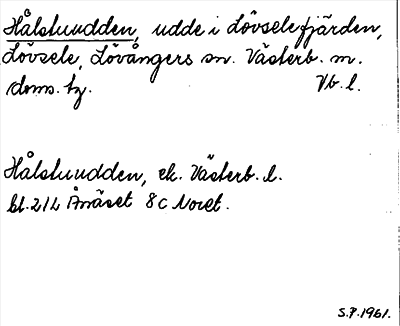 Hålstuudden, udde i Lövselefjärden,
Lövsele, Lövångers sn. Västerb. m.
doms. tg. Vb. l.
Hålstuudden, ek. Västerb. l.
bl. 21L Ånäset 8c Noret.
S.P. 1961.